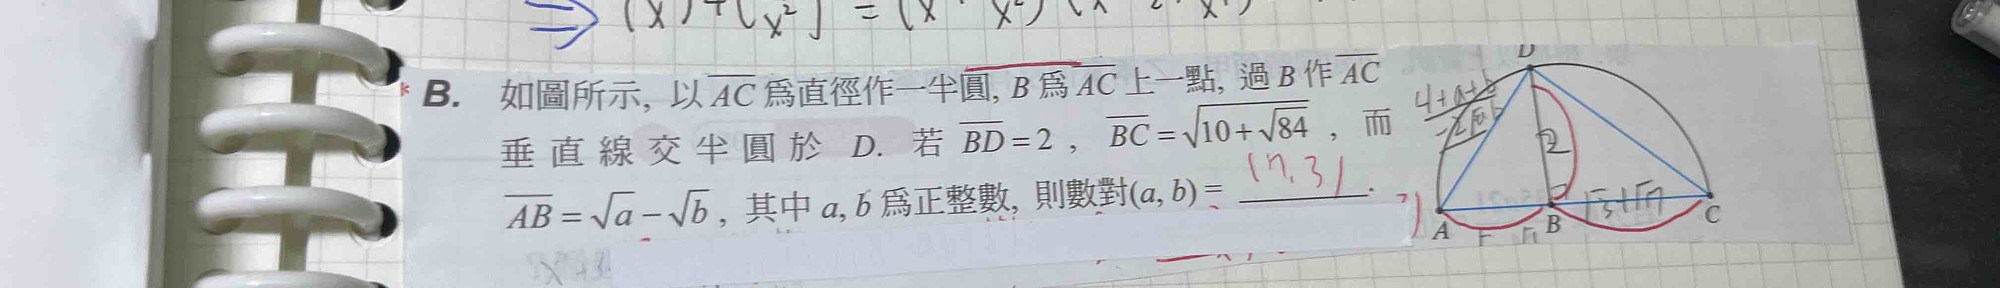 B. 如圖所示, 以 AC 爲直徑作一半圓, B 爲 AC 上一點, 過 B 作 AC
垂直線交半圓於 D. 若 BD = 2 , BC = √10 + √84 , 而
AB = √a − √b , 其中 a, b 爲正整數, 則數對(a, b) = (7, 3) .
D
4+a+b
2
√3+√7
A
B
C